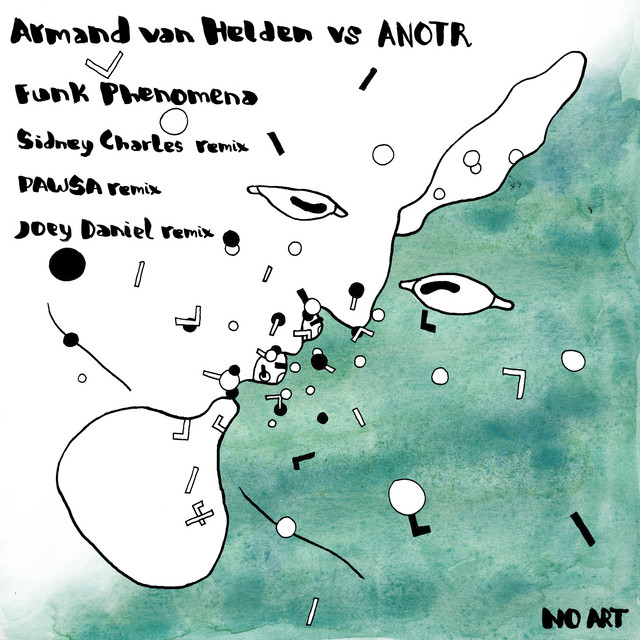 Armand van Helden vs ANOTR
Funk Phenomena
Sidney Charles remix
PAWSA remix
Joey Daniel remix
NO ART